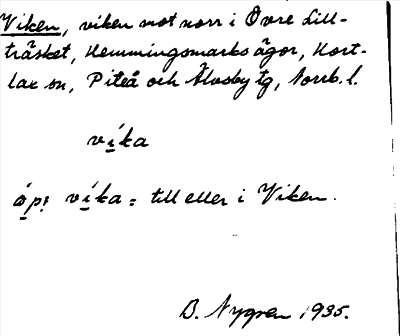 Viken, viken mot norr i Övre Lill-
träsket, Hemmingsmarks ägor, Hort-
lax sn, Piteå och Älvsby tg, Norrb. l.
víka
öp: víka = till eller i Viken.
B. Nygren 1935.